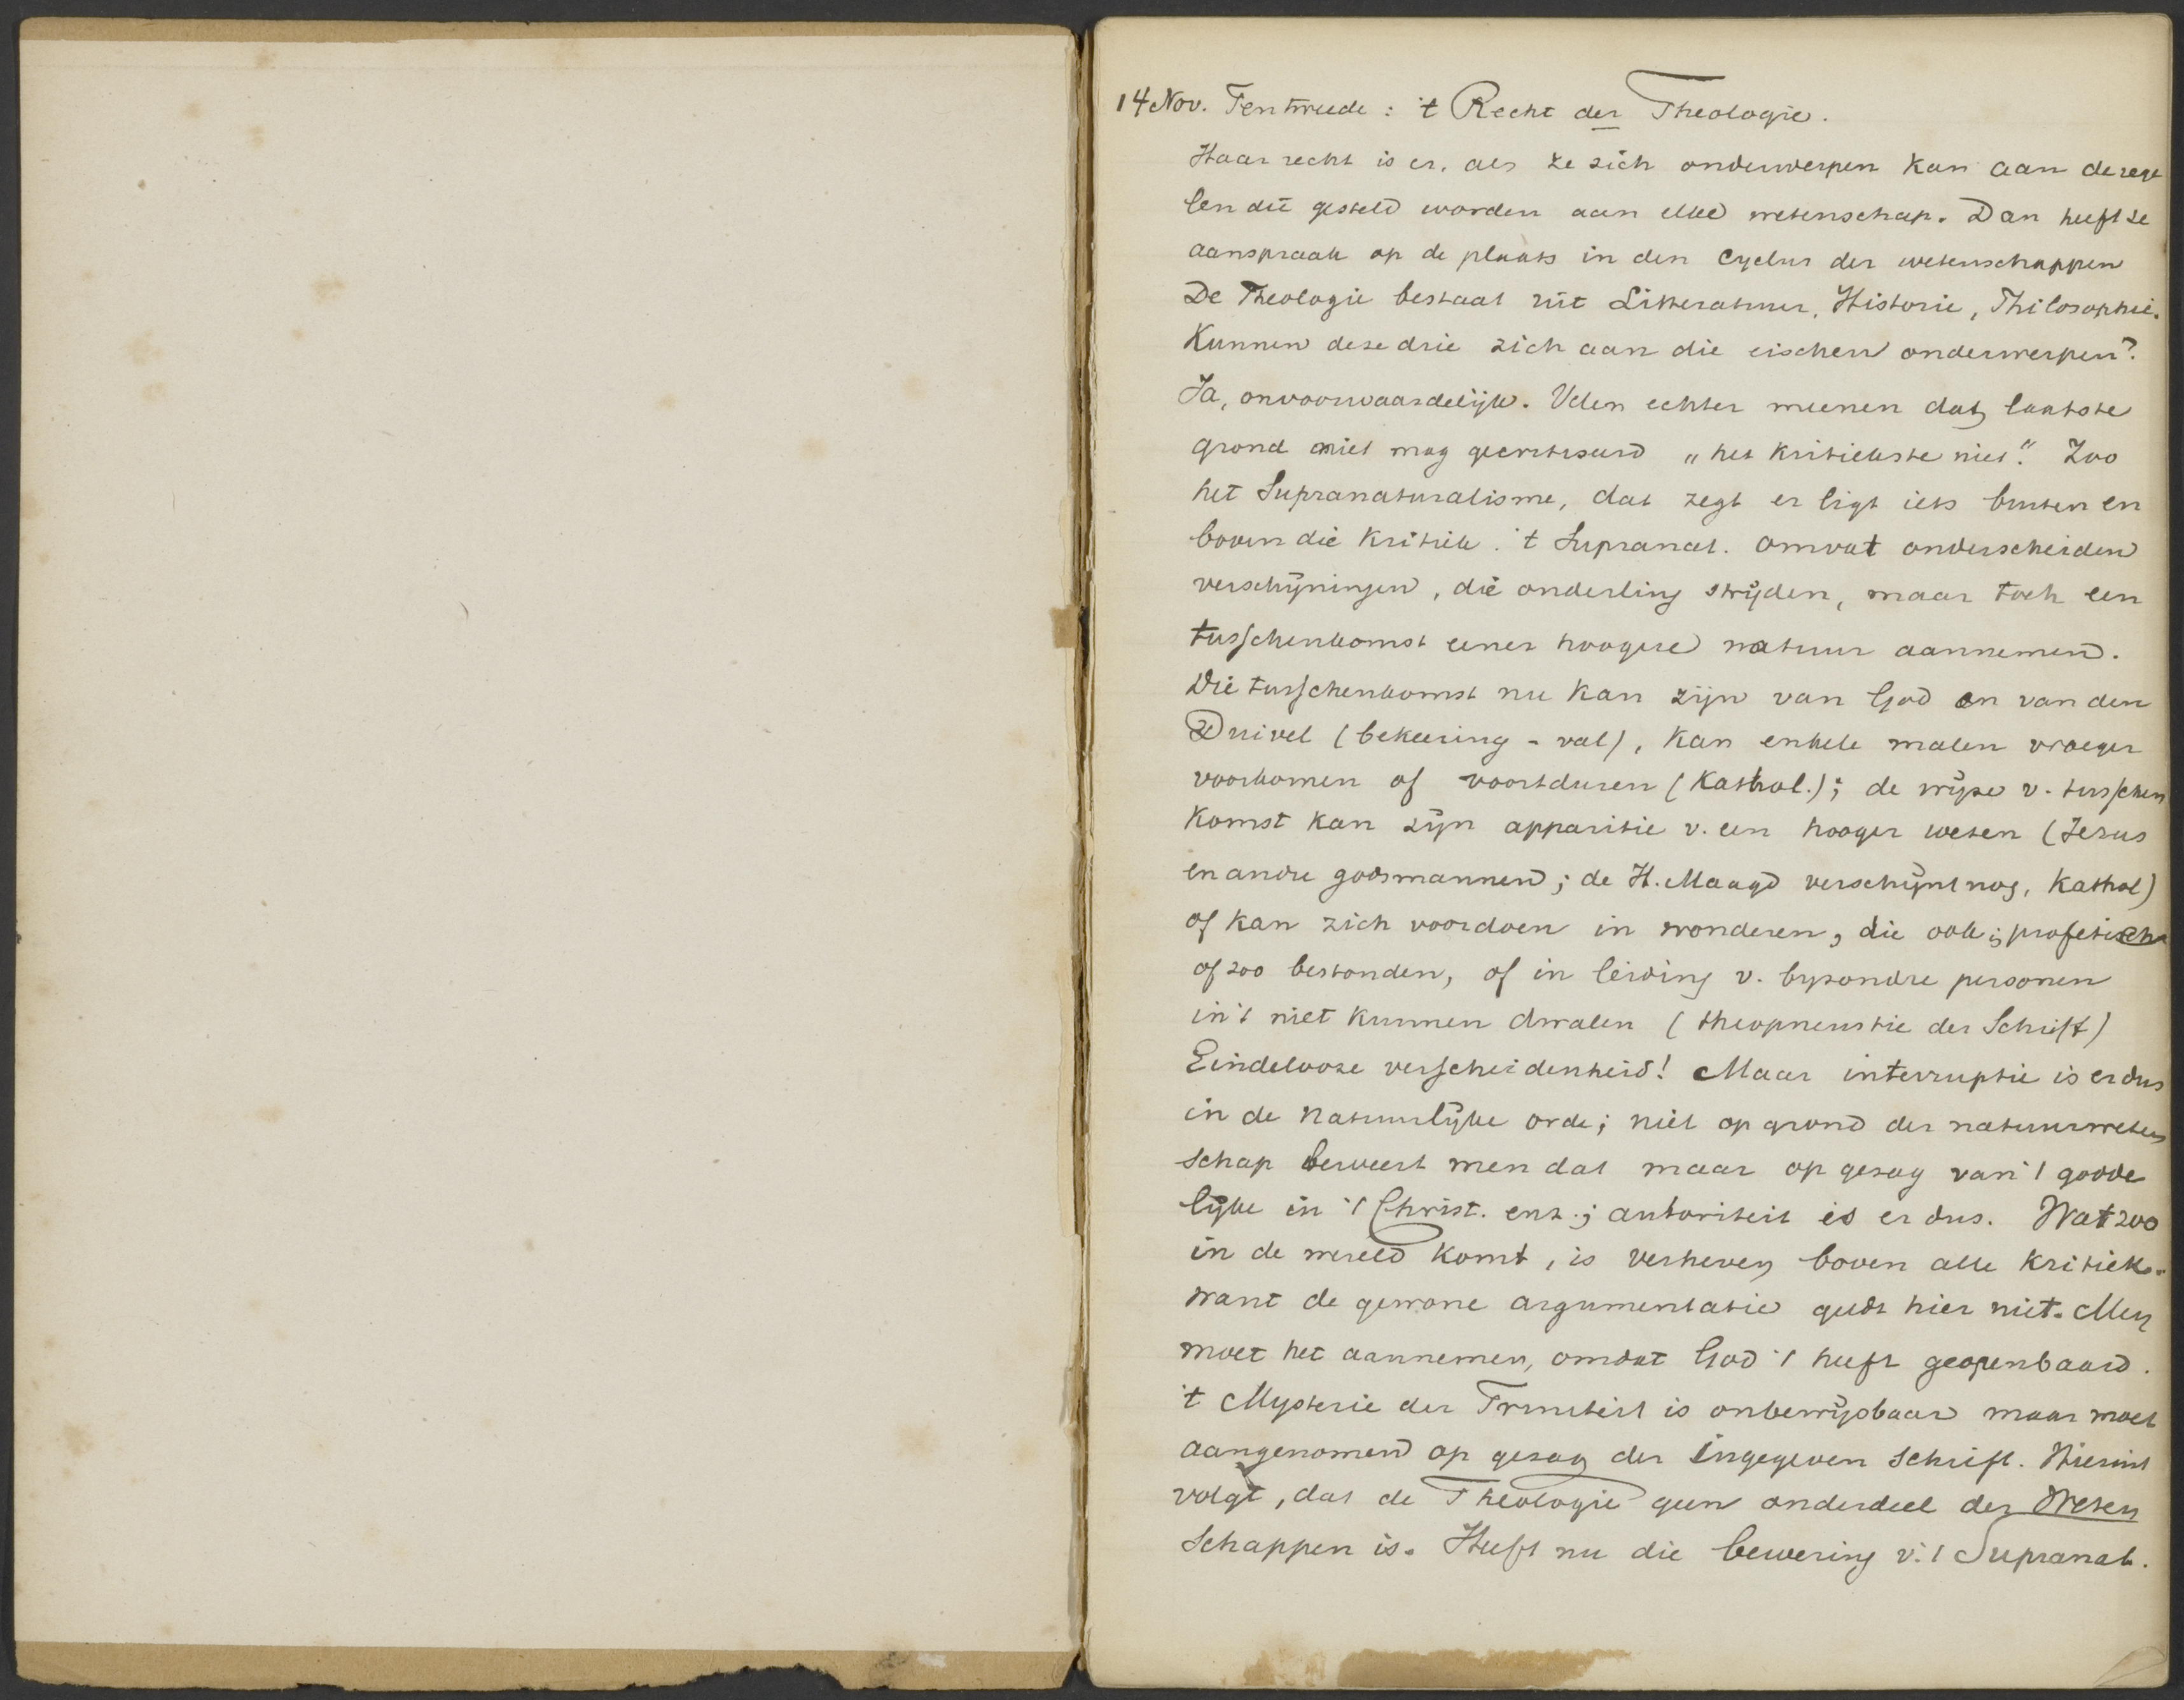 14 Nov. Ten tweede : 't Recht der Theologie.
Haar recht is er, als ze zich onderwerpen kan aan de rege
len die gesteld worden aan elke wetenschap. Dan heeft ze
aanspraak op de plaats in den Cyclus der wetenschappen
De Theologie bestaat uit Litteratuur, Historie, Philosophie.
Kunnen deze drie zich aan die eischen onderwerpen?
Ja, onvoorwaardelijk. Velen echter meenen dat laatste
grond niet mag gecritiseerd „het kritiekste niet." Zoo
het Supranaturalisme, dat zegt er ligt iets buiten en
boven die Kritiek. 't Supranat. omvat onderscheiden
verschijningen, die onderling strijden, maar toch een
tusschenkomst eener hoogere natuur aannemen.
Die tusschenkomst nu kan zijn van God en van den
Duivel (bekeering - val), kan enkele malen vroeger
voorkomen of voortduren (Kathol.); de wijze v. tusschen
komst kan zijn apparitie v. een hooger wezen (Jezus
en andre godsmannen; de H. Maagd verschijnt nog, Kathol)
of kan zich voordoen in wonderen, die ook profetisch
of zoo bestonden, of in leiding v. byzondre personen
in 't niet kunnen dwalen (theopneustie der Schrift)
Eindelooze verscheidenheid! Maar interruptie is er dus
in de natuurlijke orde; niet op grond der natuurweten
schap beweert men dat maar op gezag van 't godde
lijke in 't Christ. enz.; autoriteit is er dus. Wat zoo
in de wereld komt, is verheven boven alle Kritiek.
want de gewone argumentatie geldt hier niet. Men
moet het aannemen, omdat God 't heeft geopenbaard.
't Mysterie der Triniteit is onbewijsbaar maar moet
aangenomen op gezag der ingegeven Schrift. Hieruit
volgt, dat de Theologie geen onderdeel der Weten
schappen is. Heeft nu die bewering v. 't Supranat.